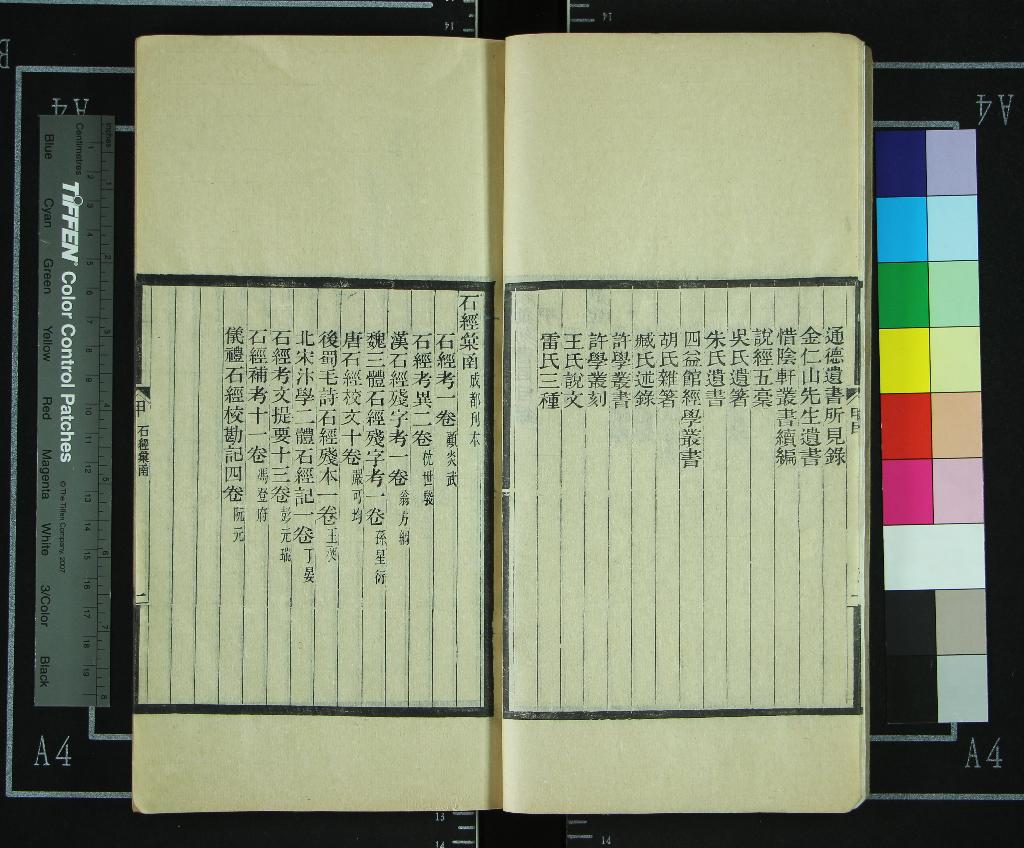 通德遺書所見錄
金仁山先生遺書
惜陰軒叢書續編
說經五稾
吳氏遺箸
朱氏遺書
四益館經學叢書
胡氏雜箸
臧氏述錄
許學叢書
許學叢刻
王氏說文
雷氏三種
石經彙函 成都刊本
石經考一卷 顧炎武
石經考異二卷 杭世駿
漢石經殘字考一卷 翁方綱
魏三體石經殘字考一卷 孫星衍
唐石經校文十卷 嚴可均
後蜀毛詩石經殘本一卷 王昶
北宋汴學二體石經記一卷 丁晏
石經考文提要十三卷 彭元瑞
石經補考十一卷 馮登府
儀禮石經校勘記四卷 阮元
甲 石經彙函
二
TIFFEN Color Control Patches
© The Tiffen Company, 2007
Centimetres
Inches
Blue Cyan Green Yellow Red Magenta White 3/Color Black
A4
A4
A4
A4